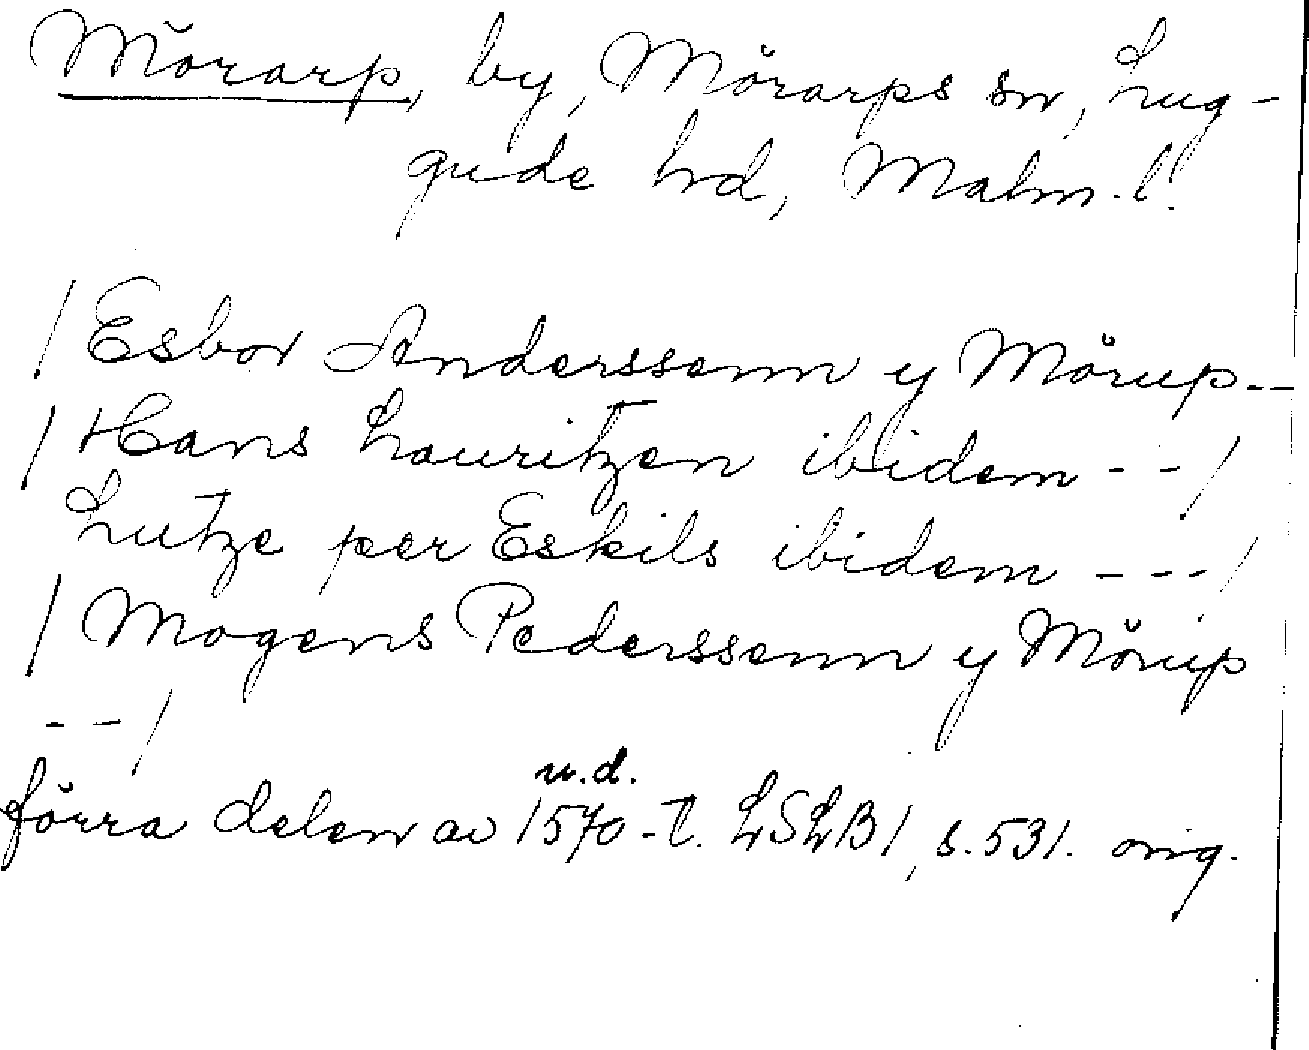 Mörarp, by, Mörarps sn, Lug-
gude hd, Malm. l.
/ Esbor Anderssenn y Mörup--
/ Hans Lauritzen ibidem --/
Lutze per Eskils ibidem ---/
/ Mogens Pederssenn y Mörup
--/
u.d.
förra delen av 1570-t. LSLB1, s. 531. orig.